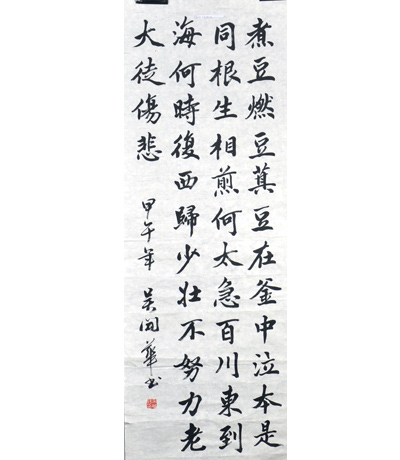 煮豆燃豆萁豆在釜中泣本是
同根生相煎何太急百川東到
海何時復西歸少壯不努力老
大徒傷悲
甲午年 吴開華书